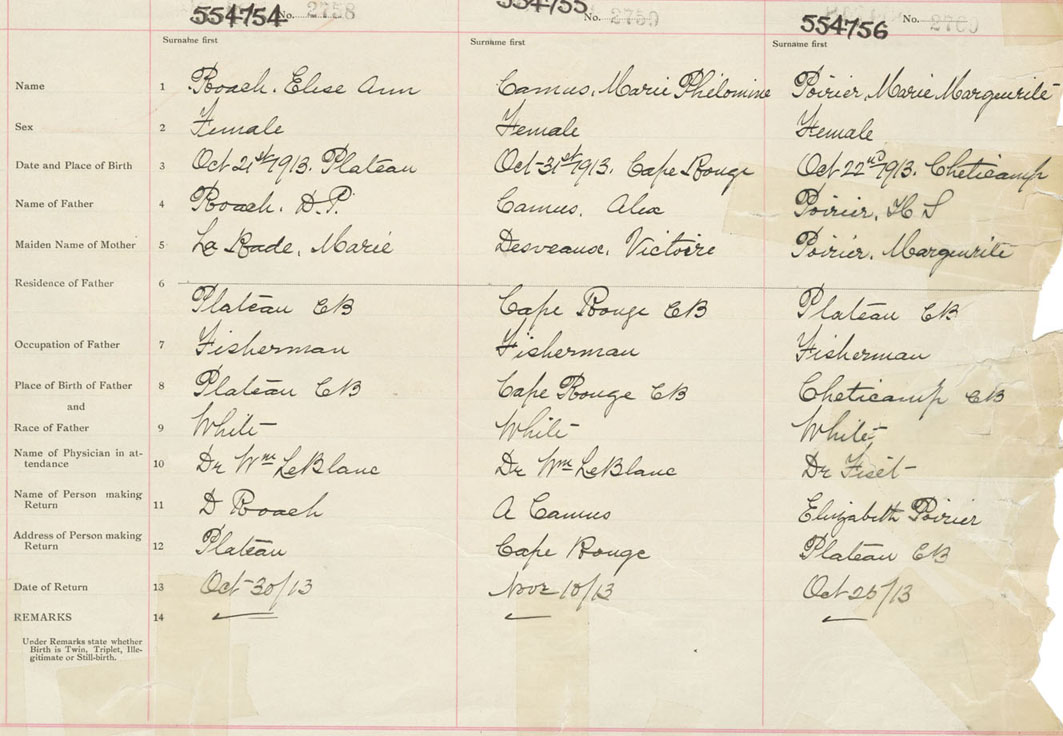 554754 No. 2758 554755 No. 2759 554756 No. 2760
Surname first Surname first Surname first
Name 1 Roach, Elise Ann Camus, Marie Philomine Poirier, Marie Marguirite
Sex 2 Female Female Female
Date and Place of Birth 3 Oct 21st 1913. Plateau Oct 31st 1913. Cape Rouge Oct 22nd 1913. Cheticamp
Name of Father 4 Roach. D.P. Camus, Alex Poirier, H S
Maiden Name of Mother 5 La Rade, Marie Desveaux, Victoire Poirier, Marguirite
Residence of Father 6
Plateau CB Cape Rouge CB Plateau CB
Occupation of Father 7 Fisherman Fisherman Fisherman
Place of Birth of Father 8 Plateau CB Cape Rouge CB Cheticamp CB
and
Race of Father 9 White White White
Name of Physician in at-
tendance 10 Dr Wm LeBlanc Dr Wm LeBlanc Dr Fiset
Name of Person making
Return 11 D Roach A Camus Elizabeth Poirier
Address of Person making
Return 12 Plateau Cape Rouge Plateau CB
Date of Return 13 Oct 30/13 Nov 10/13 Oct 25/13
REMARKS 14
Under Remarks state whether
Birth is Twin, Triplet, Ille-
gitimate or Still-birth.